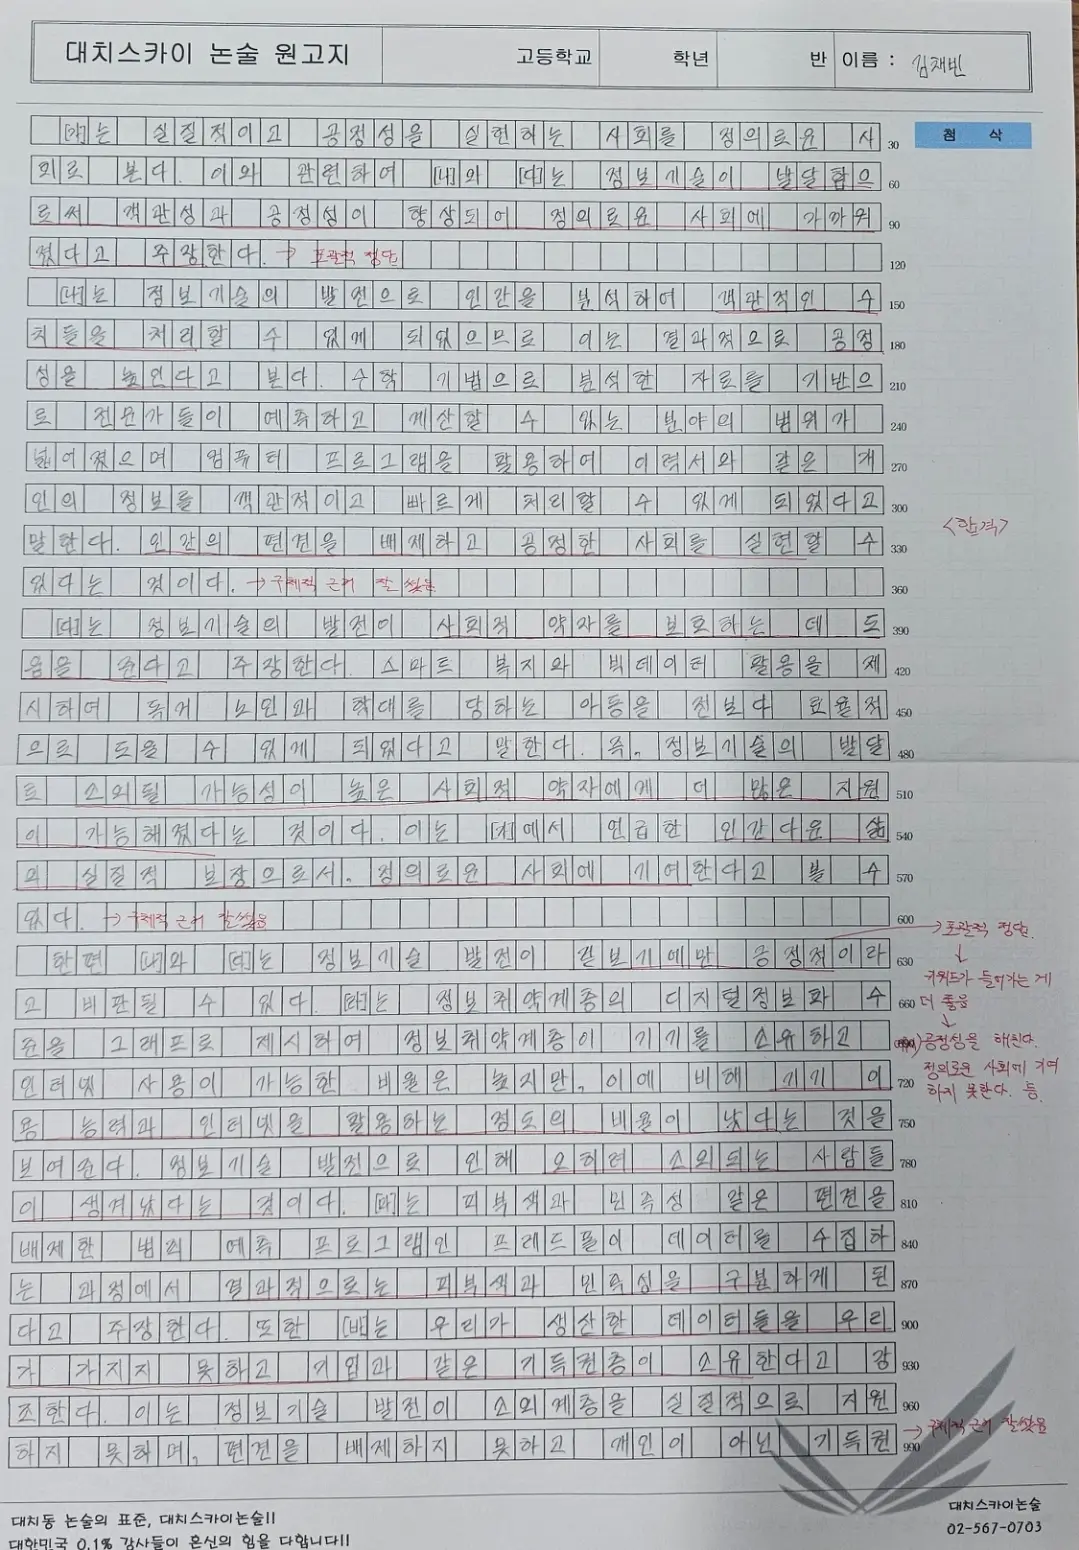 대치스카이 논술 원고지 고등학교 학년 반 이름 : 김채빈
첨 삭
[가]는 실질적이고 공정성을 실현하는 사회를 정의로운 사 30
회로 본다. 이와 관련하여 [나]와 [다]는 정보기술이 발달함으 60
로써 객관성과 공정성이 향상되어 정의로운 사회에 가까워 90
졌다고 주장한다. → 포괄적 정답 120
[나]는 정보기술의 발전으로 인간을 분석하여 객관적인 수 150
치들을 처리할 수 있게 되었으므로 이는 결과적으로 공정 180
성을 높인다고 본다. 수학 기법으로 분석한 자료를 기반으 210
로 전문가들이 예측하고 계산할 수 있는 분야의 범위가 240
넓어졌으며 컴퓨터 프로그램을 활용하여 이력서와 같은 개 270
인의 정보를 객관적이고 빠르게 처리할 수 있게 되었다고 300
<합격>
말한다. 인간의 편견을 배제하고 공정한 사회를 실현할 수 330
있다는 것이다. → 구체적 근거 잘 썼음 360
[다]는 정보기술의 발전이 사회적 약자를 보호하는 데 도 390
움을 준다고 주장한다. 스마트 복지와 빅데이터 활용을 제 420
시하여 독거 노인과 학대를 당하는 아동을 전보다 효율적 450
으로 도울 수 있게 되었다고 말한다. 즉, 정보기술의 발달 480
로 소외될 가능성이 높은 사회적 약자에게 더 많은 지원 510
이 가능해졌다는 것이다. 이는 [가]에서 언급한 인간다운 삶 540
의 실질적 보장으로서, 정의로운 사회에 기여한다고 볼 수 570
있다. → 구체적 근거 잘썼음 600
→ 포괄적 정답.
한편 [나]와 [다]는 정보기술 발전이 겉보기에만 긍정적이라 630
↓
키워드가 들어가는 게
더 좋음
고 비판될 수 있다. [라]는 정보취약계층의 디지털정보화 수 660
↓
준을 그래프로 제시하여 정보취약계층이 기기를 소유하고
공정성을 해친다.
정의로운 사회에 기여
하지 못한다. 등.
인터넷 사용이 가능한 비율은 높지만, 이에 비해 기기 이 720
용 능력과 인터넷을 활용하는 정도의 비율이 낮다는 것을 750
보여준다. 정보기술 발전으로 인해 오히려 소외되는 사람들 780
이 생겨났다는 것이다. [마]는 피부색과 민족성 같은 편견을 810
배제한 범죄 예측 프로그램인 프레드폴이 데이터를 수집하 840
는 과정에서 결과적으로는 피부색과 민족성을 구분하게 된 870
다고 주장한다. 또한 [바]는 우리가 생산한 데이터들을 우리 900
가 가지지 못하고 기업과 같은 기득권층이 소유한다고 강 930
조한다. 이는 정보기술 발전이 소외계층을 실질적으로 지원 960
하지 못하며, 편견을 배제하지 못하고 개인이 아닌 기득권 990
→ 구체적 근거 잘썼음
대치동 논술의 표준, 대치스카이논술!!
대한민국 0.1% 강사들이 혼신의 힘을 다합니다!!
대치스카이논술
02-567-0703